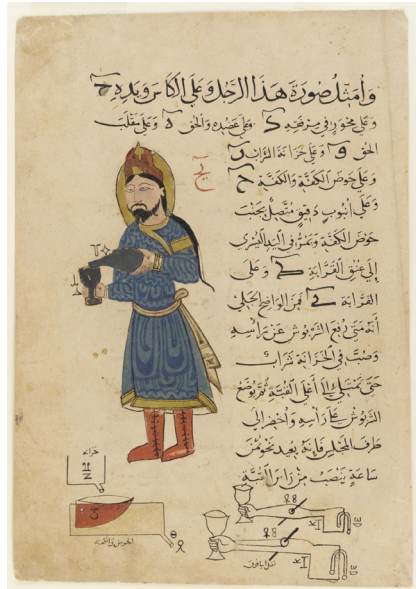 وامثل صورة هذا الرجل وعلى الكاس ويده
وعلى محور في مرفقه وعلى عضده والحق وعلى مقلب
الحق و وعلى خزانة الشراب
وعلى حوض الكفة والكفة ح
وعلى انبوب دقيق متصل بجنب
حوض الكفة ويمر في اليد اليسرى
إلى عنق القرابة وعلى
القرابة فمن الواضح الجلي
أنه متى رفع الشربوش عن راسه
وصب في الخزانة شراب
حتى تمتلي إلى أعلى القبة ثم يوضع
الشربوش على راسه واحضر إلى
طرف المجلس فإنه بعيد نحو من
ساعة ينصب من راس القبة
الحوض والكفه